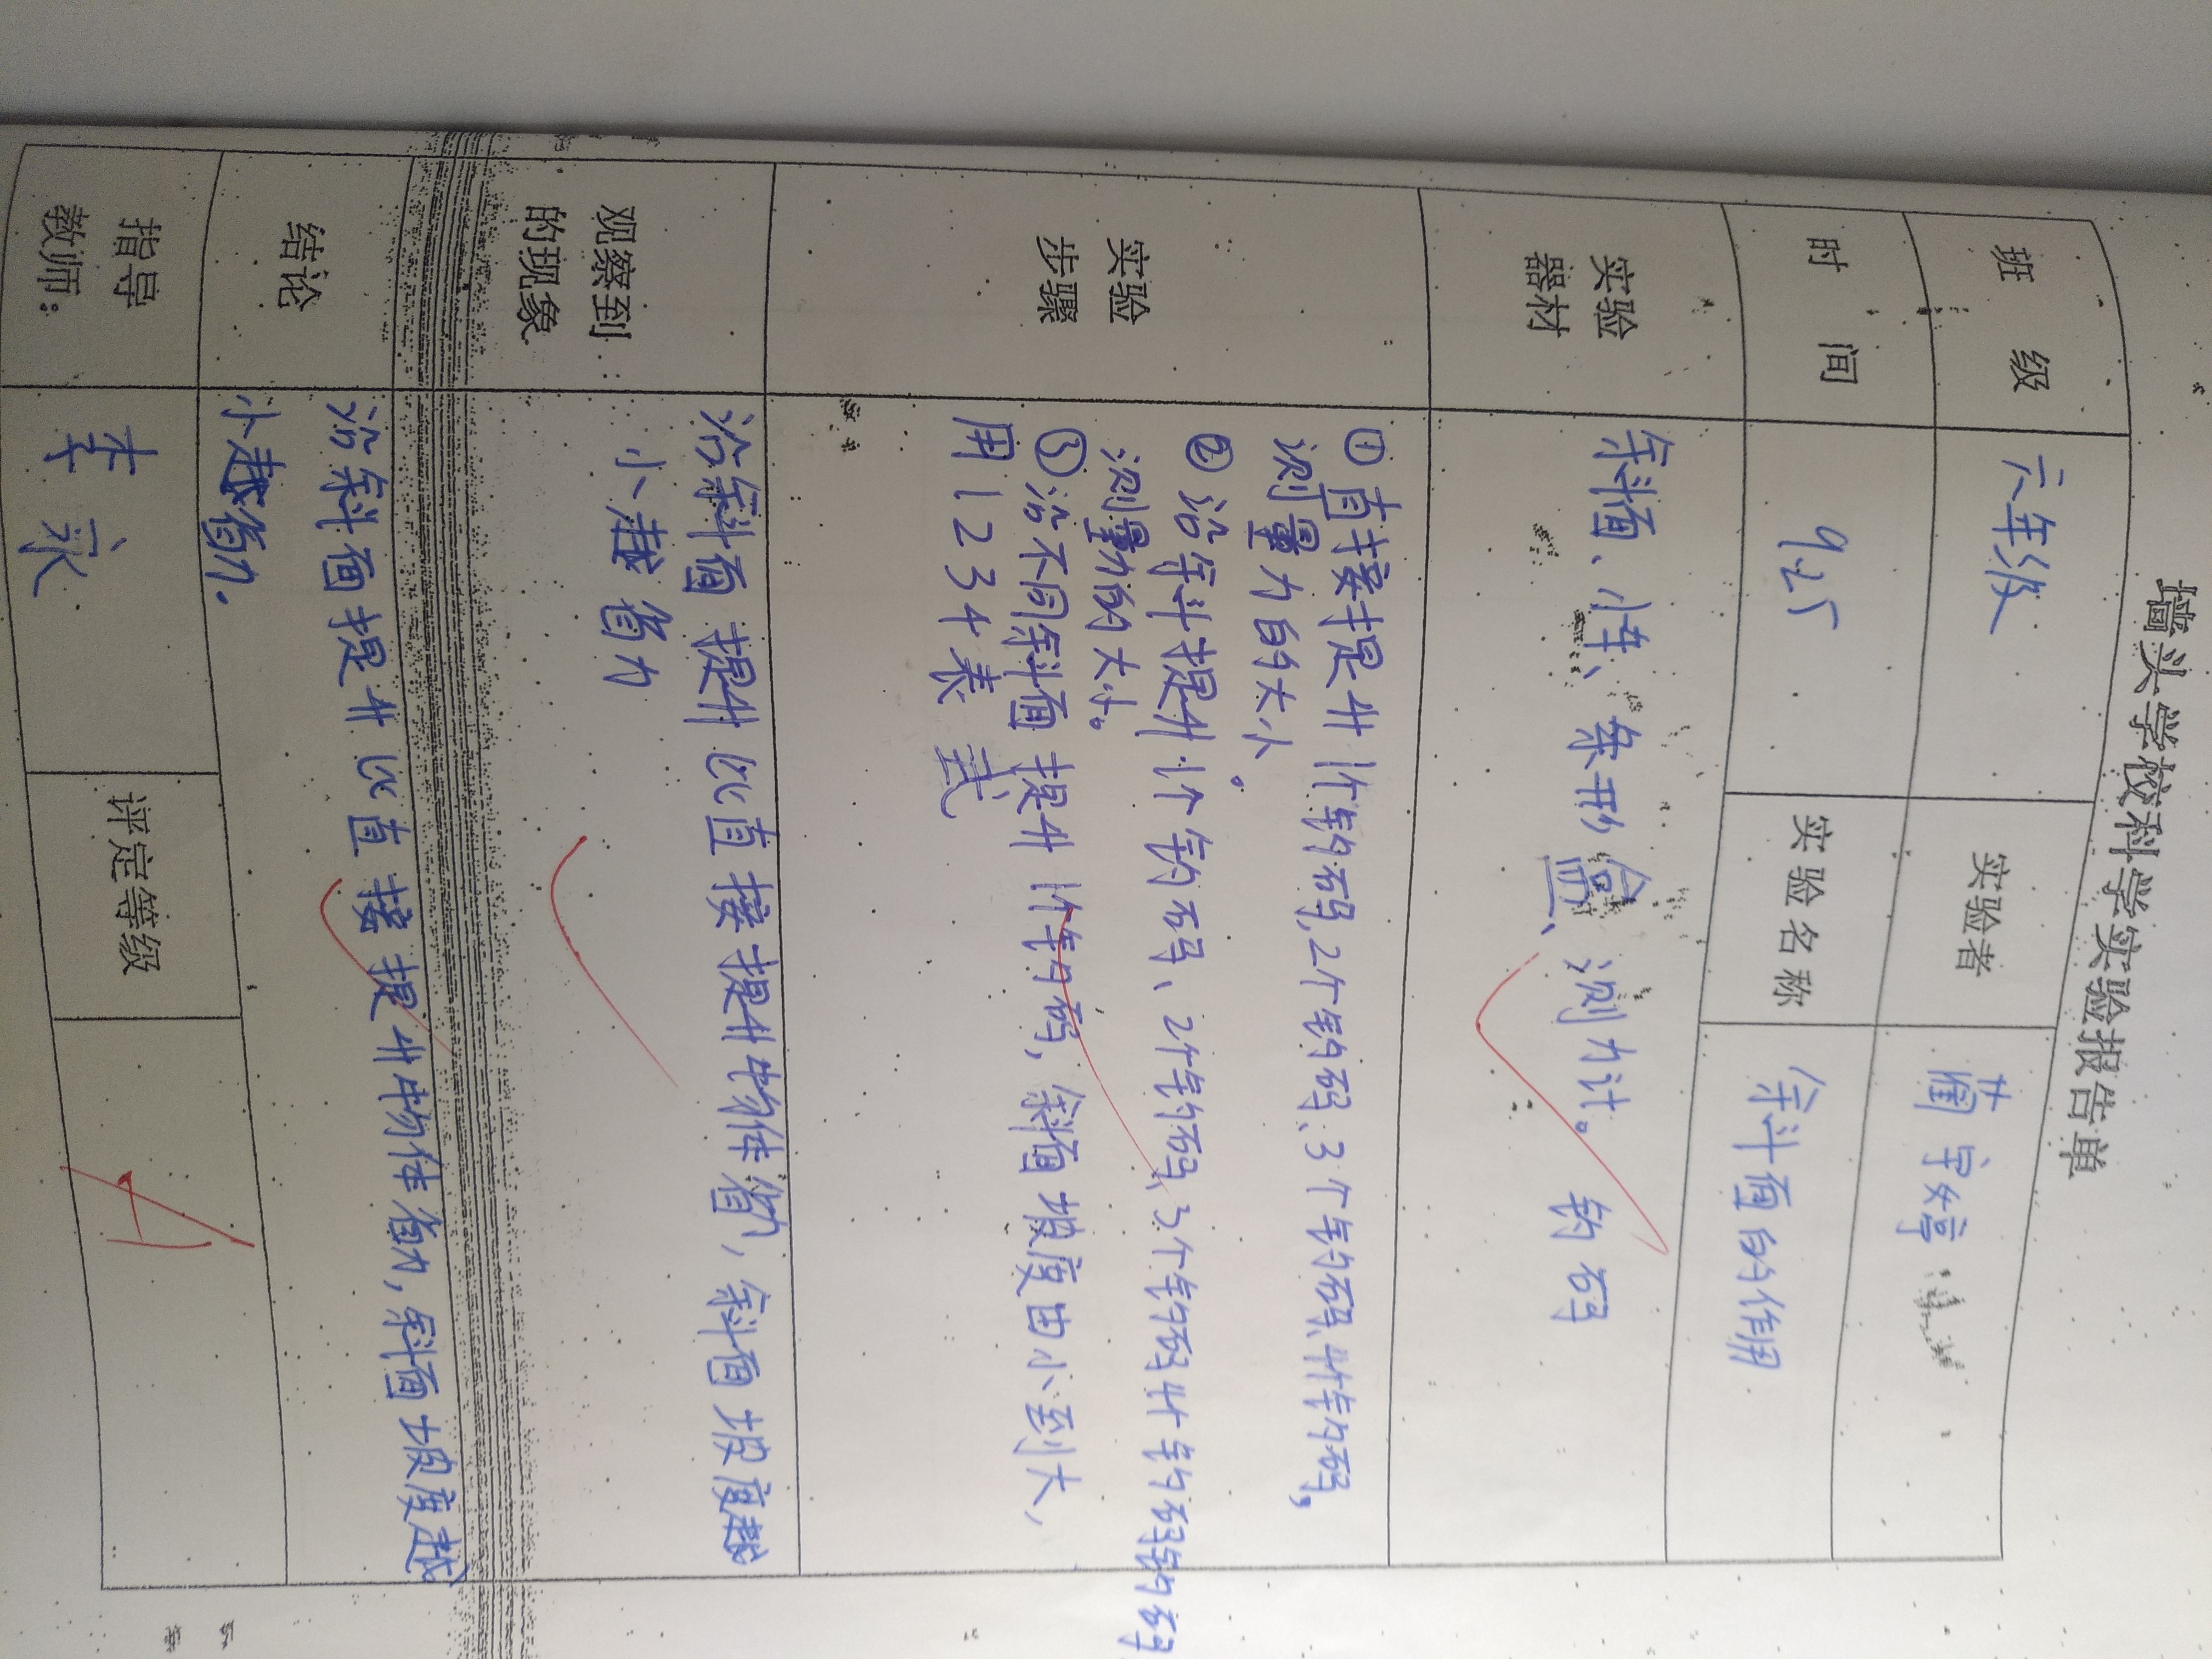 墙头学校科学实验报告单
班 级 六年级 实验者 蔺宇婷
时 间 9.25 实验名称 斜面的作用
实验
器材
斜面、小车、条形盒、测力计。 钩码
实验
步骤
①直接提升1个钩码,2个钩码、3个钩码、4个钩码,
测量力的大小。
②沿斜提升1个钩码、2个钩码、3个钩码4个钩码钩码
测量力的大小。
③沿不同斜面提升1个钩码,斜面坡度由小到大,
用1234表
观察到
的现象
沿斜面提升比直接提升物体省力,斜面坡度越
小越省力
结论
沿斜面提升比直接提升物体省力,斜面坡度越
小越省力.
指导
教师:
李永
评定等级 A